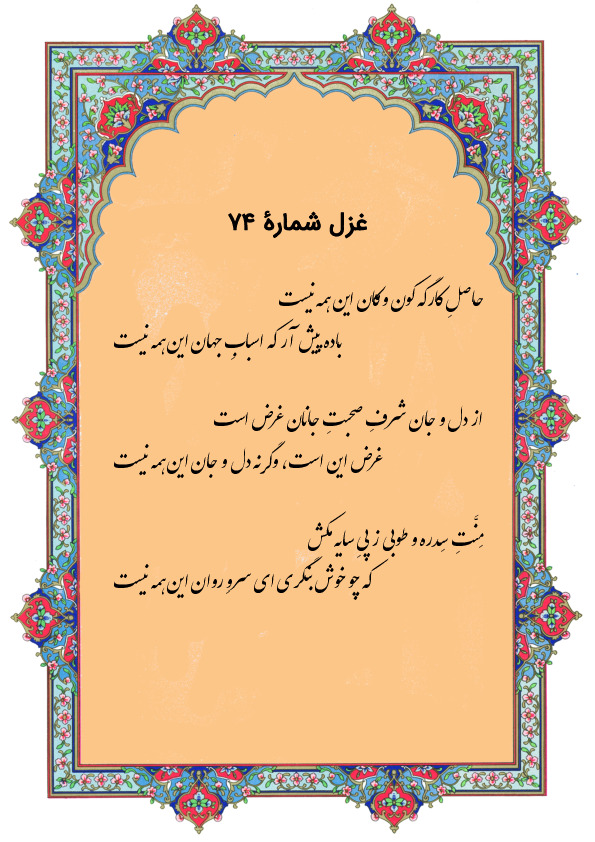 غزل شمارهٔ ۷۴
حاصلِ کارگه کون و مکان این همه نیست
باده پیش آر که اسبابِ جهان این همه نیست
از دل و جان شرفِ صحبتِ جانان غرض است
غرض این است، وگرنه دل و جان این همه نیست
مِنَّتِ سِدره و طوبی ز پیِ سایه مکش
که چو خوش بنگری ای سروِ روان این همه نیست